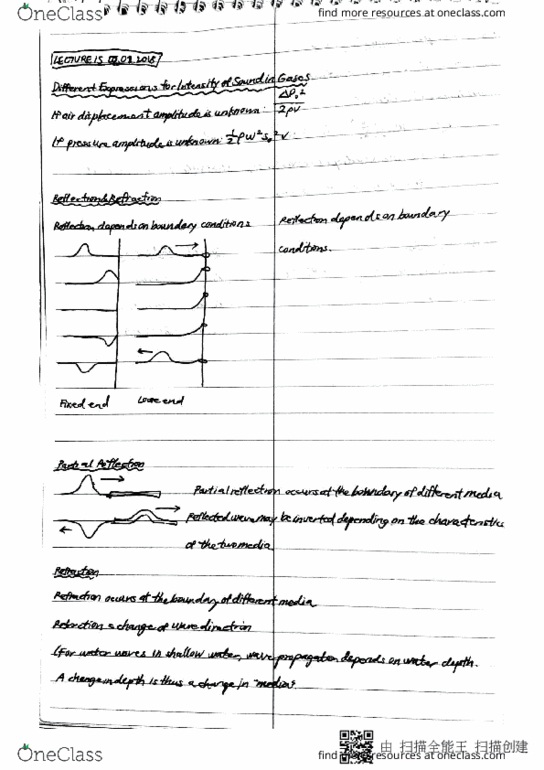 OneClass
find more resources at oneclass.com
LECTURE 15 02.09.2018
Different Expressions for Intensity of Sound in Gases
If air displacement amplitude is unknown: ΔP₀²/2ρv
If pressure amplitude is unknown: ½ρω²s₀²v
Reflection & Refraction
Reflection depends on boundary conditions
Reflection depends on boundary
conditions.
Fixed end Loose end
Partial Reflection
Partial reflection occurs at the boundary of different media
Reflected wave may be inverted depending on the characteristic
of the two media
Refraction
Refraction occurs at the boundary of different media
Refraction = change of wave direction
(For water waves in shallow water, wave propagation depends on water depth.
A change in depth is thus a change in "media".
OneClass
find more resources at oneclass.com
由 扫描全能王 扫描创建